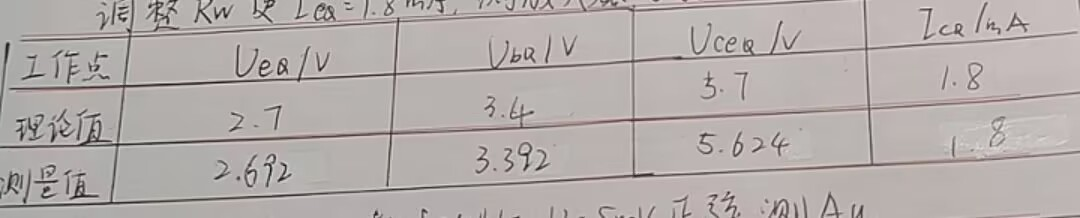 调整 Rw 使 Icq=1.8mA,
工作点 Ueq/V Ubq/V Uceq/V Icq/mA
理论值 2.7 3.4 5.7 1.8
测量值 2.692 3.392 5.624 1.8
5mV 正弦 测Au